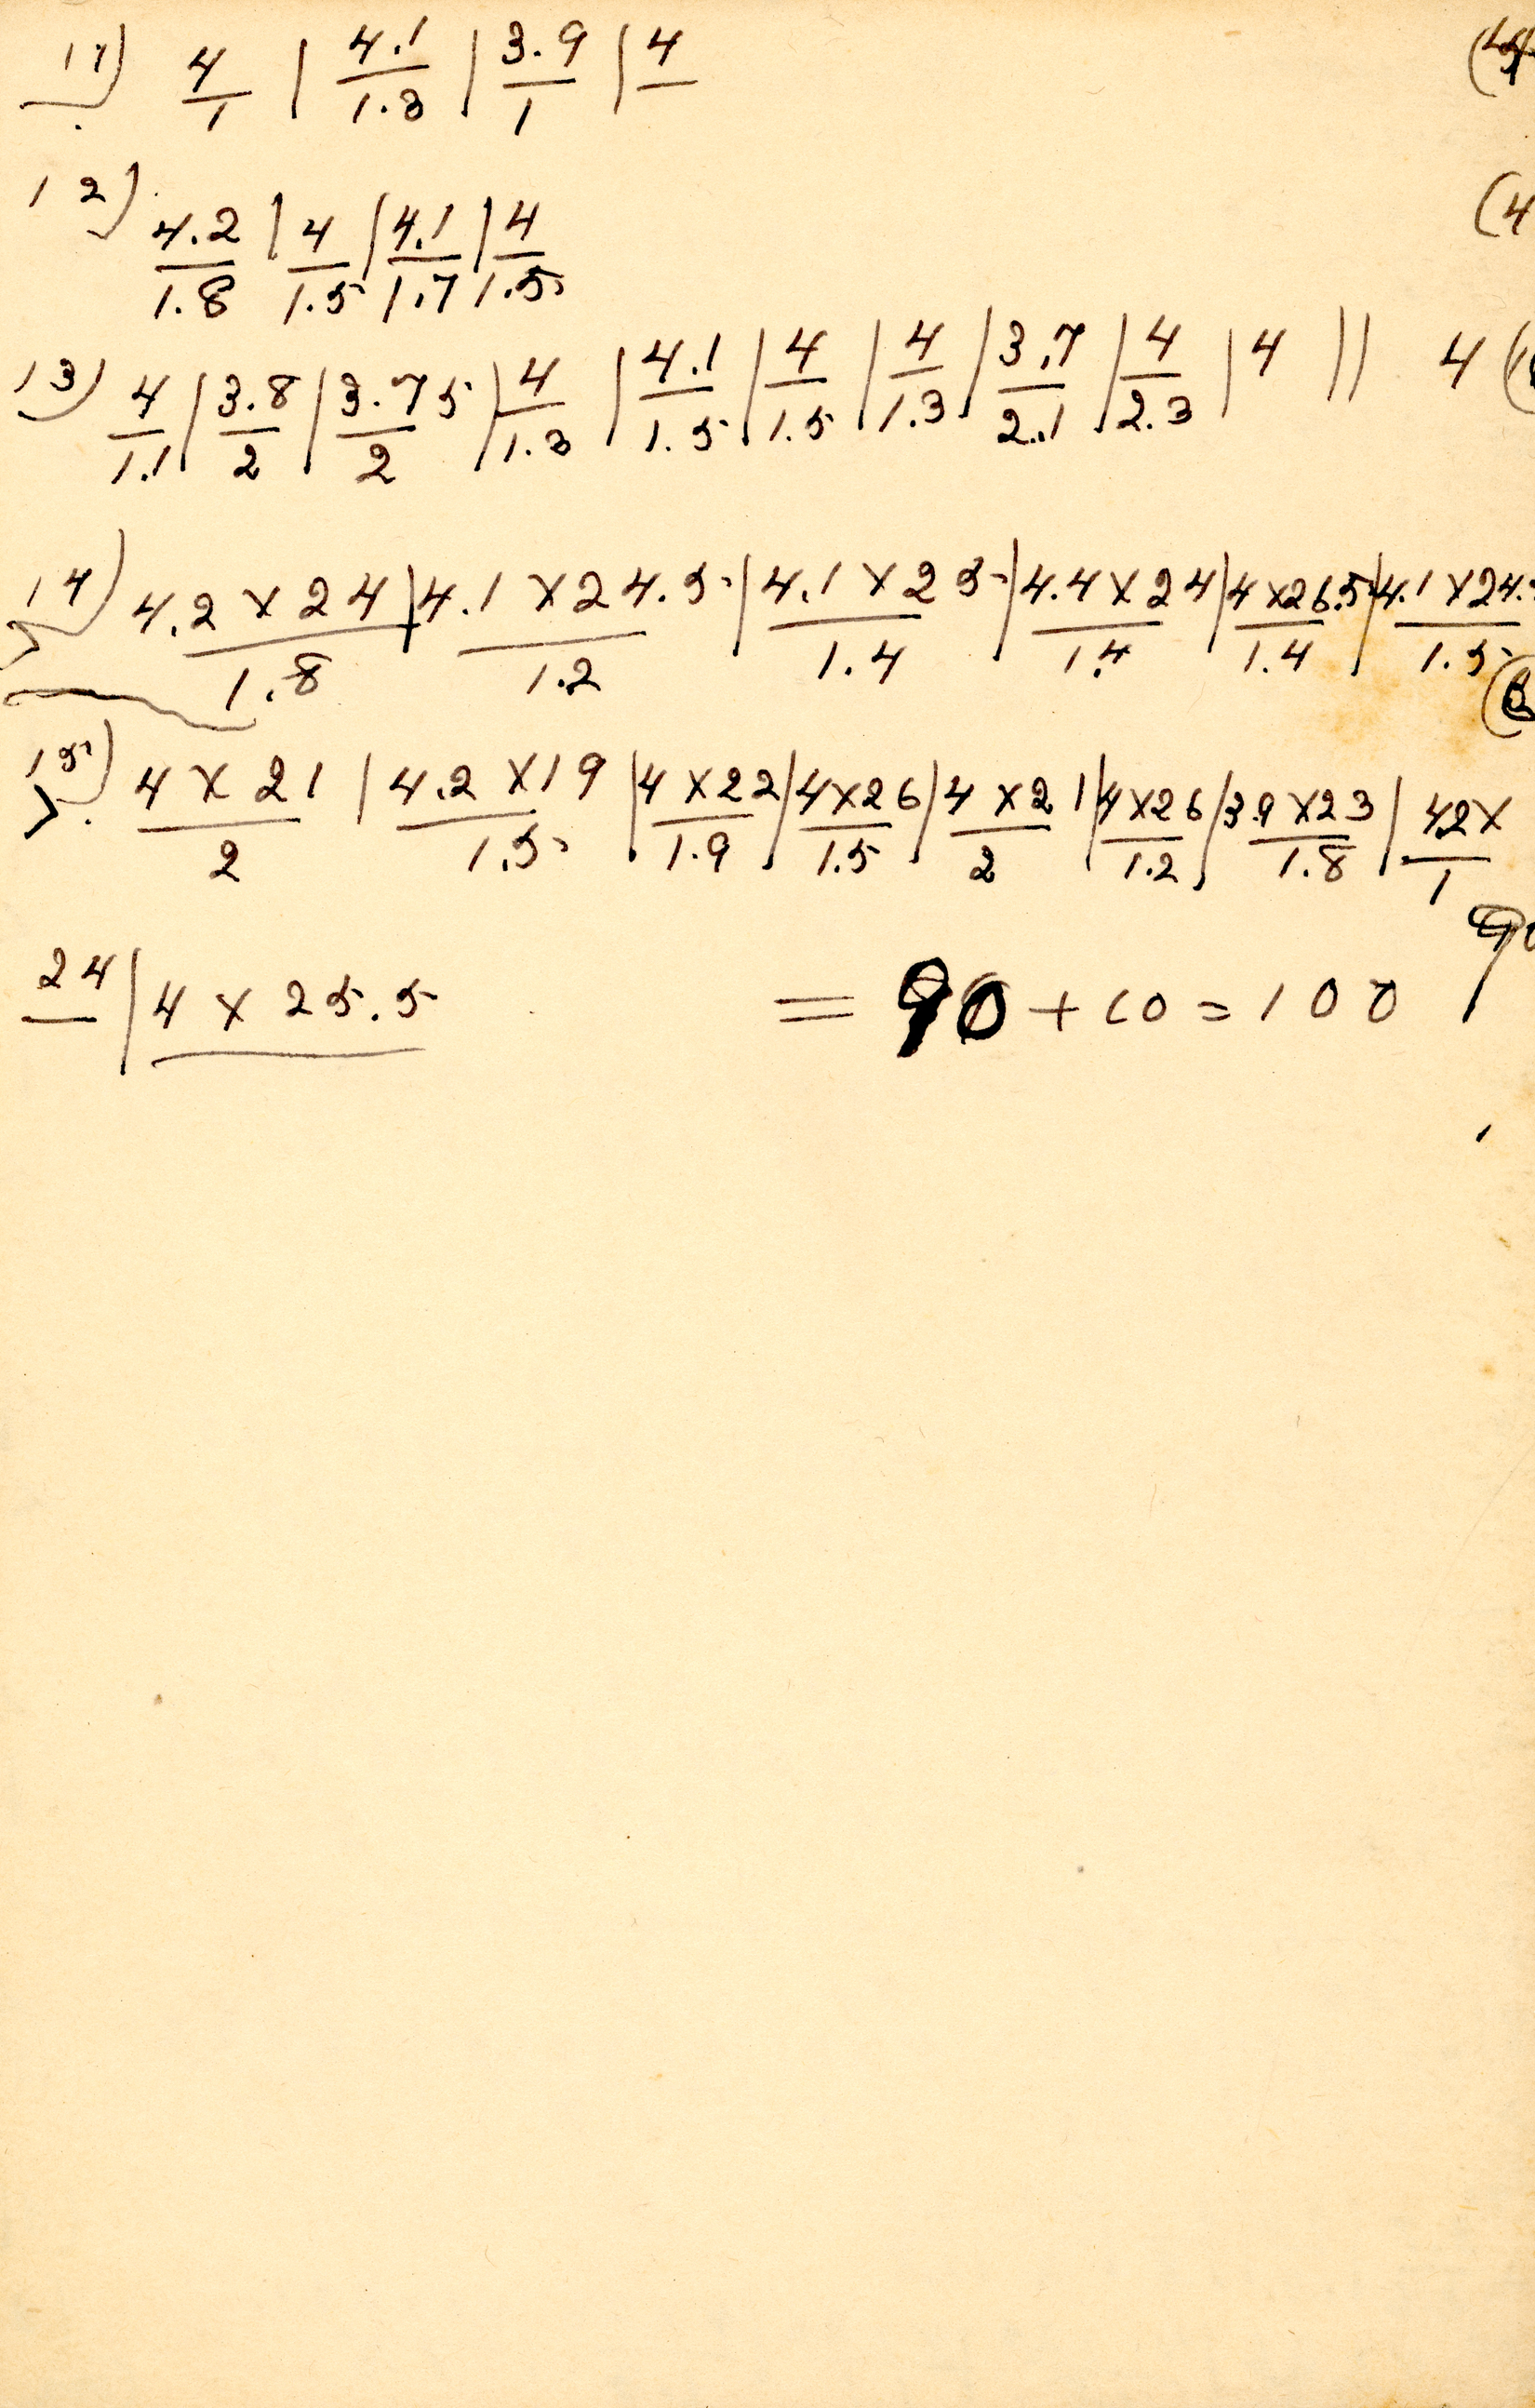 11) 4/1 | 4.1/1.3 | 3.9/1 | 4/
12) 4.2/1.8 | 4/1.5 | 4.1/1.7 | 4/1.5
13) 4/1.1 | 3.8/2 | 3.75/2 | 4/1.3 | 4.1/1.5 | 4/1.5 | 4/1.3 | 3.7/2.1 | 4/2.3 | 4 || 4 (
14) 4.2 x 24/1.8 | 4.1 x 24.5/1.2 | 4.1 x 25/1.4 | 4.4 x 24/1.4 | 4 x 26.5/1.4 | 4.1 x 24./1.5
15) 4 x 21/2 | 4.2 x 19/1.5 | 4 x 22/1.9 | 4 x 26/1.5 | 4 x 21/2 | 4 x 26/1.2 | 3.9 x 23/1.8 | 4.2 x/1
24/ | 4 x 25.5/ = 90 + 10 = 100